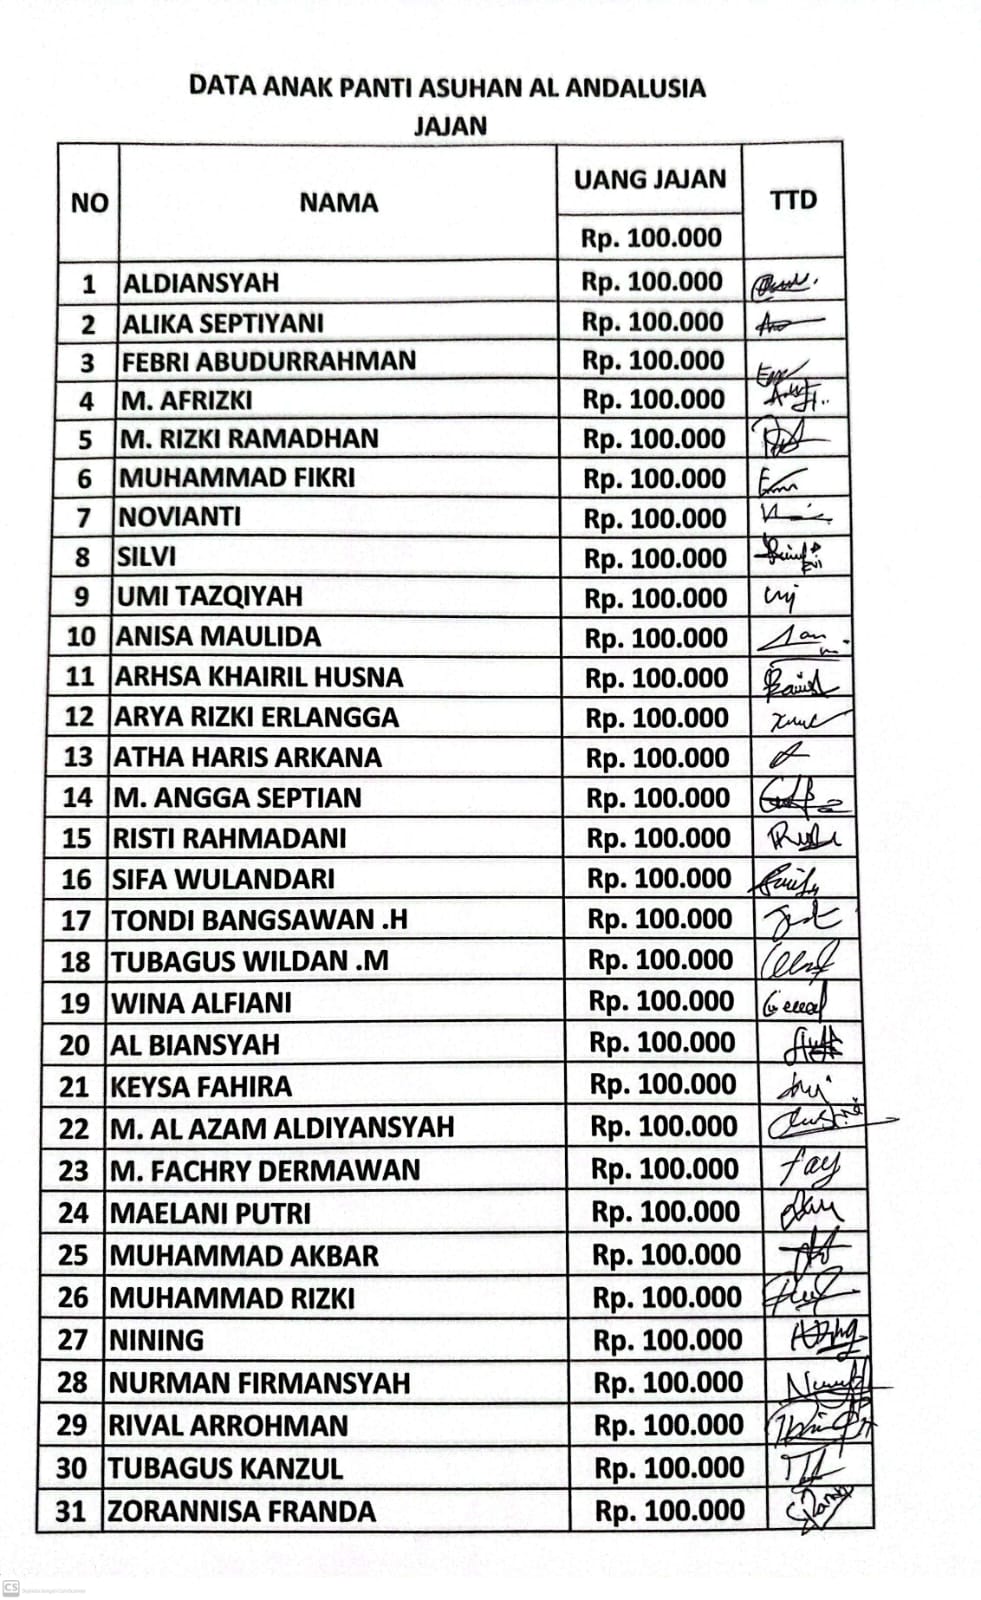 DATA ANAK PANTI ASUHAN AL ANDALUSIA
JAJAN
NO NAMA UANG JAJAN TTD
Rp. 100.000
1 ALDIANSYAH Rp. 100.000
2 ALIKA SEPTIYANI Rp. 100.000
3 FEBRI ABUDURRAHMAN Rp. 100.000
4 M. AFRIZKI Rp. 100.000
5 M. RIZKI RAMADHAN Rp. 100.000
6 MUHAMMAD FIKRI Rp. 100.000
7 NOVIANTI Rp. 100.000
8 SILVI Rp. 100.000
9 UMI TAZQIYAH Rp. 100.000
10 ANISA MAULIDA Rp. 100.000
11 ARHSA KHAIRIL HUSNA Rp. 100.000
12 ARYA RIZKI ERLANGGA Rp. 100.000
13 ATHA HARIS ARKANA Rp. 100.000
14 M. ANGGA SEPTIAN Rp. 100.000
15 RISTI RAHMADANI Rp. 100.000
16 SIFA WULANDARI Rp. 100.000
17 TONDI BANGSAWAN .H Rp. 100.000
18 TUBAGUS WILDAN .M Rp. 100.000
19 WINA ALFIANI Rp. 100.000
20 AL BIANSYAH Rp. 100.000
21 KEYSA FAHIRA Rp. 100.000
22 M. AL AZAM ALDIYANSYAH Rp. 100.000
23 M. FACHRY DERMAWAN Rp. 100.000
24 MAELANI PUTRI Rp. 100.000
25 MUHAMMAD AKBAR Rp. 100.000
26 MUHAMMAD RIZKI Rp. 100.000
27 NINING Rp. 100.000
28 NURMAN FIRMANSYAH Rp. 100.000
29 RIVAL ARROHMAN Rp. 100.000
30 TUBAGUS KANZUL Rp. 100.000
31 ZORANNISA FRANDA Rp. 100.000
CS